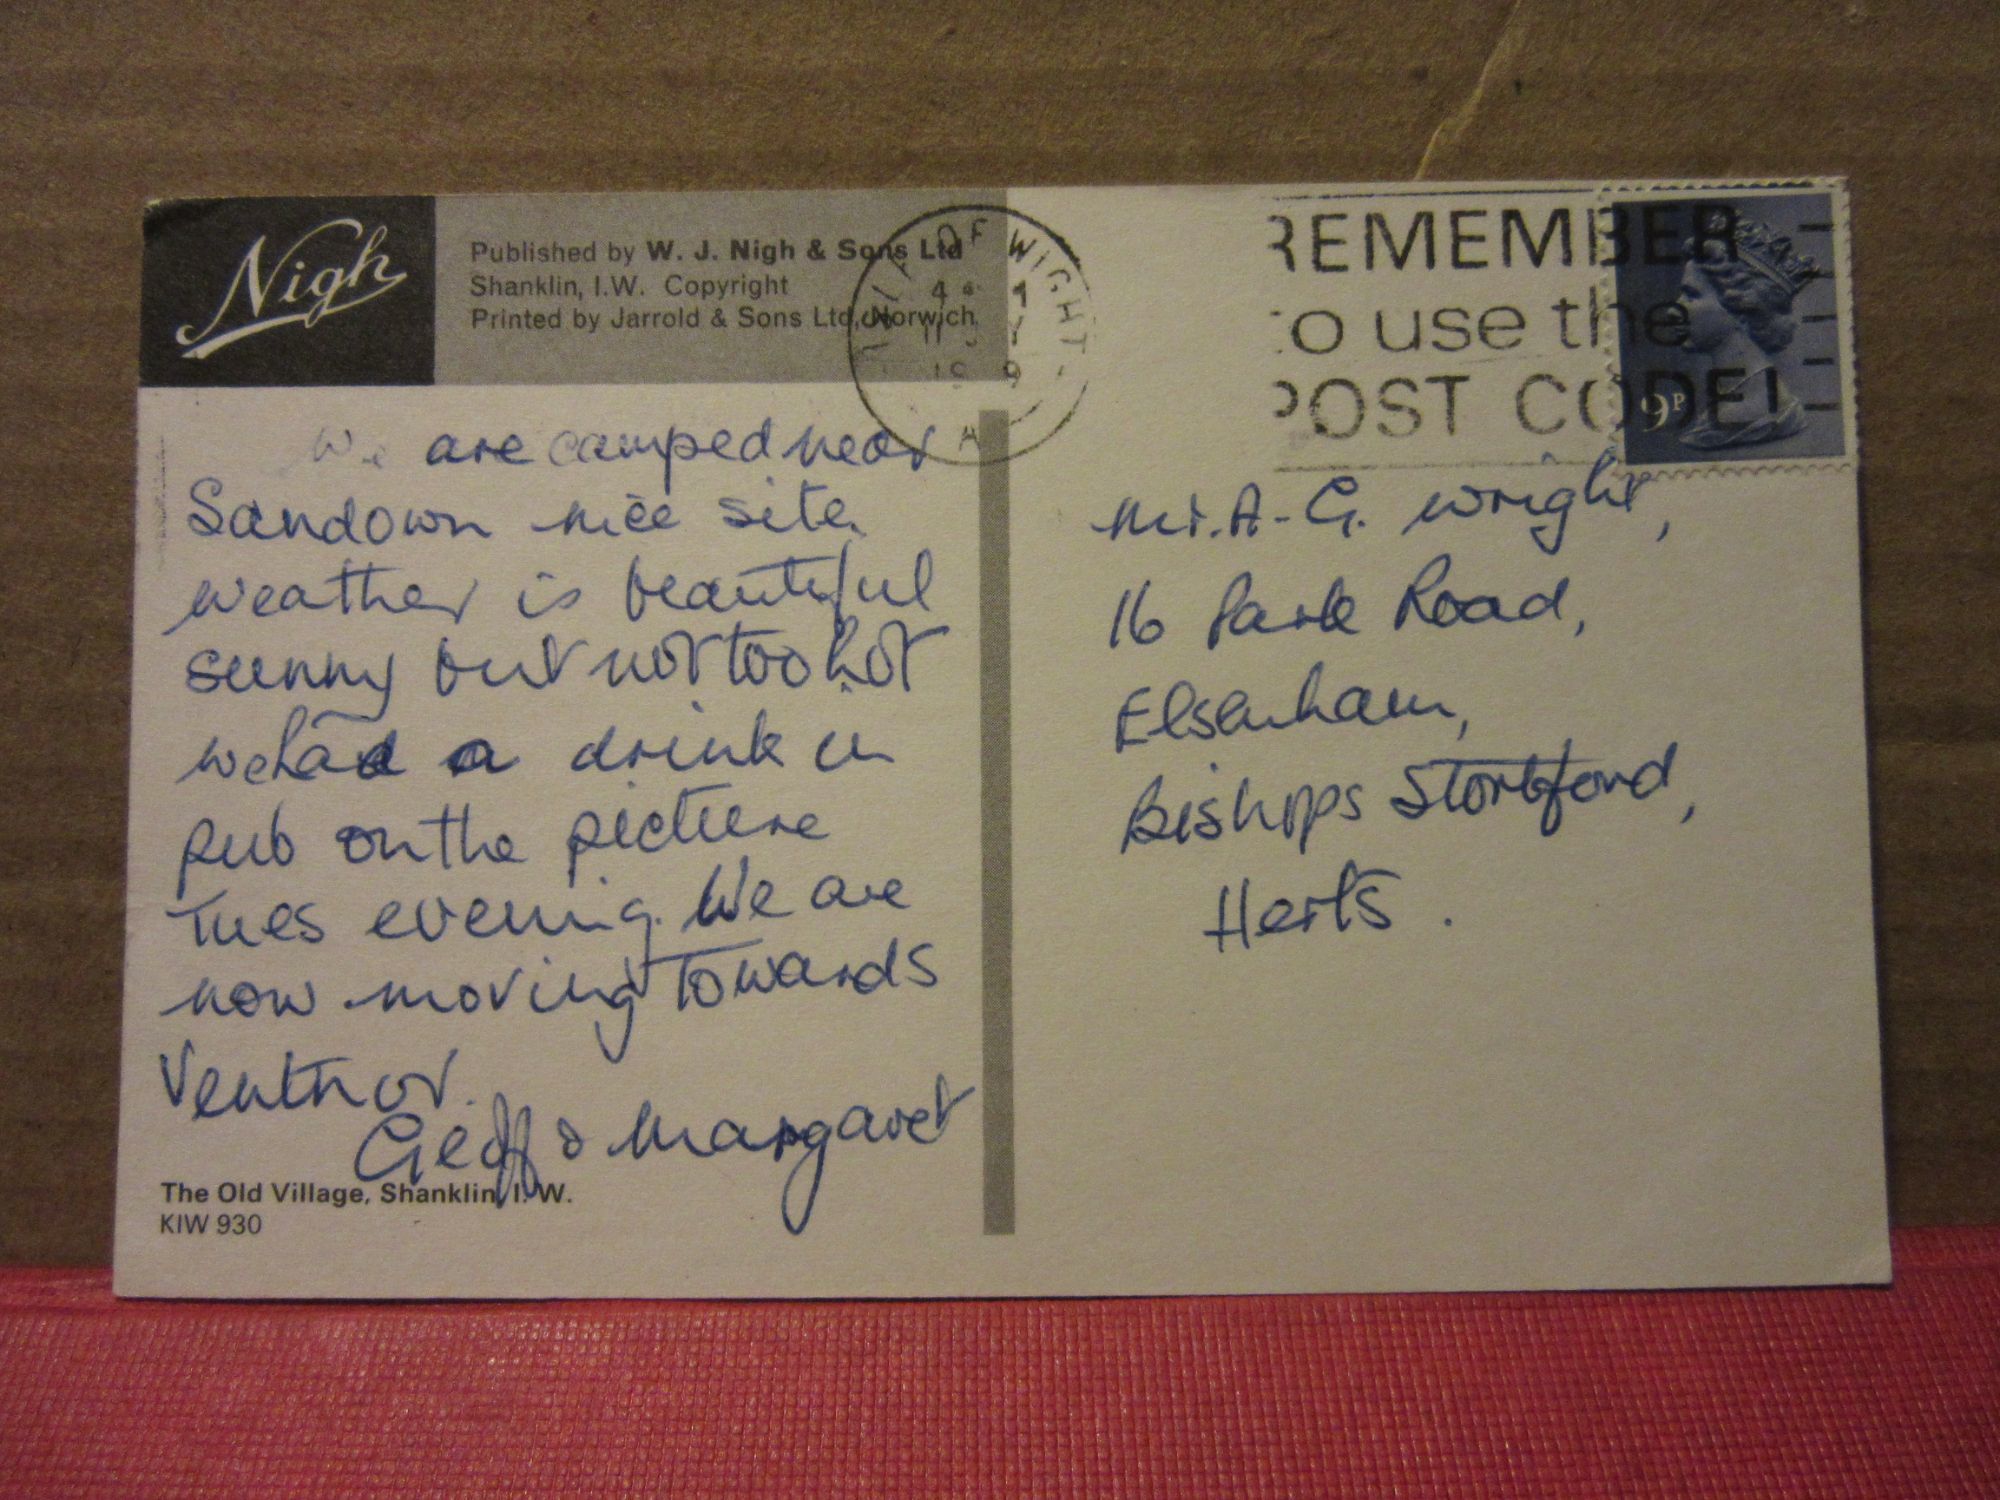 Nigh
Published by W. J. Nigh & Sons Ltd
Shanklin, I.W. Copyright
Printed by Jarrold & Sons Ltd, Norwich
OF WIGHT
A
REMEMBER
to use the
POST CODE!
9P
We are camped near
Sandown nice site.
weather is beautiful
sunny but not too hot
we had a drink in
pub on the picture
Tues evening. We are
now moving towards
Ventnor.
Geoff & Margaret
The Old Village, Shanklin, I.W.
KIW 930
Mr. A. G. Wright,
16 Park Road,
Elsenham,
Bishops Stortford,
Herts.